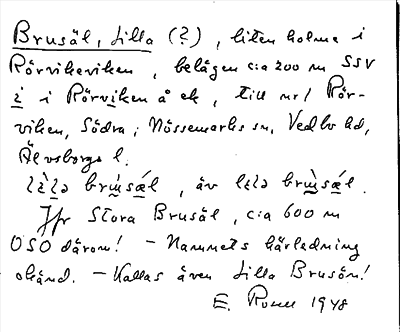 Brusäl, Lilla (?), liten holme i
Rörvikeviken, belägen c:a 200 m SSV
i i Rörviken å ek, till nr 1 Rör-
viken, Södra; Nössemarks sn, Vedbo hd,
Älvsborgs l.
, äv
Jfr Stora Brusäl, c:a 600 m
OSO därom! – Namnets härledning
okänd. – Kallas även Lilla Brusön!
E. 1948